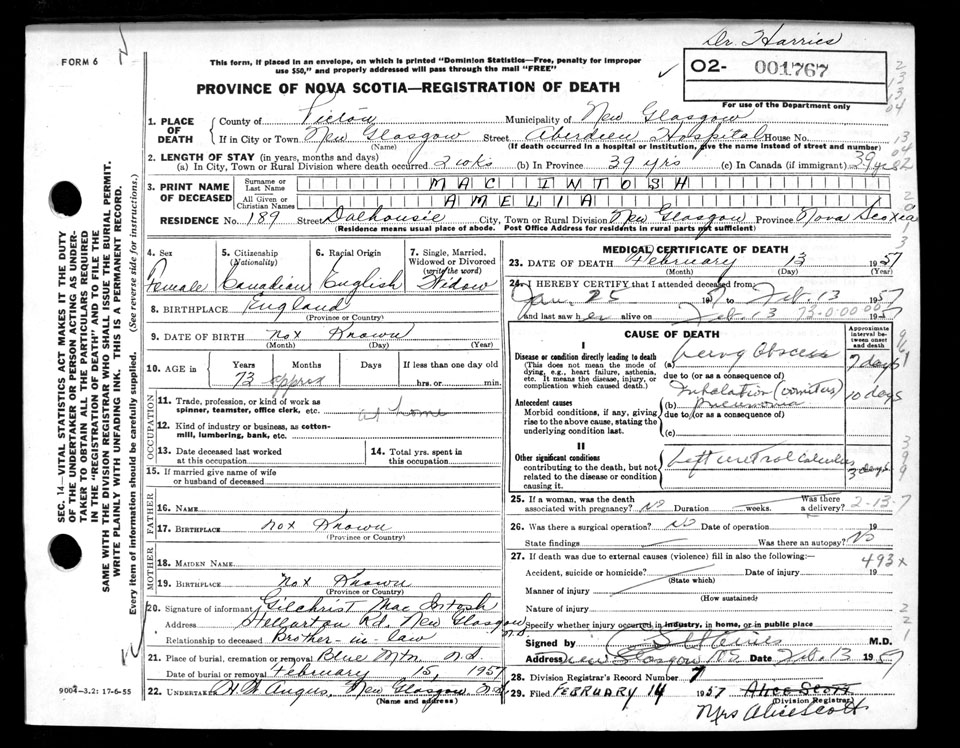 Dr. Harries
FORM 6
This form, if placed in an envelope, on which is printed "Dominion Statistics—Free, penalty for improper
use $50," and properly addressed will pass through the mail "FREE"
02- 001767
For use of the Department only
PROVINCE OF NOVA SCOTIA—REGISTRATION OF DEATH
1. PLACE OF DEATH
County of Pictou Municipality of New Glasgow
If in City or Town New Glasgow Street Aberdeen Hospital House No.
(Name) (If death occurred in a hospital or institution, give the name instead of street and number)
2. LENGTH OF STAY (in years, months and days)
(a) In City, Town or Rural Division where death occurred 2 wks (b) In Province 39 yrs (c) In Canada (if immigrant) 39 yrs
3. PRINT NAME OF DECEASED
Surname or Last Name MAC INTOSH
All Given or Christian Names AMELIA
RESIDENCE No. 189 Street Dalhousie City, Town or Rural Division New Glasgow Province Nova Scotia
(Residence means usual place of abode. Post Office Address for residents in rural parts not sufficient)
4. Sex
Female
5. Citizenship (Nationality)
Canadian
6. Racial Origin
English
7. Single, Married, Widowed or Divorced (write the word)
Widow
8. BIRTHPLACE England
(Province or Country)
9. DATE OF BIRTH Not Known
(Month) (Day) (Year)
10. AGE in Years Months Days If less than one day old
73 approx hrs. or min.
OCCUPATION
11. Trade, profession, or kind of work as
spinner, teamster, office clerk, etc. at home
12. Kind of industry or business, as cotton-
mill, lumbering, bank, etc.
13. Date deceased last worked
at this occupation
14. Total yrs. spent in
this occupation
15. If married give name of wife
or husband of deceased
FATHER
16. Name
17. Birthplace Not Known
(Province or Country)
MOTHER
18. Maiden Name
19. Birthplace Not Known
(Province or Country)
20. Signature of informant Gilchrist Mac Intosh
Address Stellarton Rd. New Glasgow N.S.
Relationship to deceased Brother-in-law
21. Place of burial, cremation or removal Blue Mtn N.S.
Date of burial or removal February 15, 1957
22. Undertaker H W Angus, New Glasgow N.S.
(Name and address)
9004-3.2: 17-6-55
MEDICAL CERTIFICATE OF DEATH
23. DATE OF DEATH February 13 1957
(Month) (Day) (Year)
24. I HEREBY CERTIFY that I attended deceased from
Jan. 25 19 to Feb. 13 1957
and last saw her alive on Feb. 13 1957
CAUSE OF DEATH
Approximate interval between onset and death
I
Disease or condition directly leading to death
(This does not mean the mode of
dying, e.g., heart failure, asthenia,
etc. It means the disease, injury, or
complication which caused death.)
(a) Lung Abscess 7 days
due to (or as a consequence of)
Inhalation (vomitus)
(b) Pneumonia 10 days
Antecedent causes
Morbid conditions, if any, giving
rise to the above cause, stating the
underlying condition last.
due to (or as a consequence of)
(c)
II
Other significant conditions
contributing to the death, but not
related to the disease or condition
causing it.
Left uretral calculus 3 days
25. If a woman, was the death
associated with pregnancy? No Duration weeks. Was there a delivery? 2-13-7
26. Was there a surgical operation? No Date of operation 19
State findings Was there an autopsy? No
27. If death was due to external causes (violence) fill in also the following:— 493x
Accident, suicide or homicide? Date of injury 19
(State which)
Manner of injury
(How sustained)
Nature of injury
Specify whether injury occurred in industry, in home, or in public place
Signed by M.D.
Address New Glasgow N.S. Date Feb. 13 1957
28. Division Registrar's Record Number 7
29. Filed FEBRUARY 14 1957 Alice Scott
(Division Registrar)
Mrs Alice Scott
SEC. 14—VITAL STATISTICS ACT MAKES IT THE DUTY
OF THE UNDERTAKER OR PERSON ACTING AS UNDER-
TAKER TO OBTAIN ALL THE PARTICULARS REQUIRED
IN THE "REGISTRATION OF DEATH" AND TO FILE THE
SAME WITH THE DIVISION REGISTRAR WHO SHALL ISSUE THE BURIAL PERMIT.
WRITE PLAINLY WITH UNFADING INK. THIS IS A PERMANENT RECORD.
Every item of information should be carefully supplied. (See reverse side for instructions.)